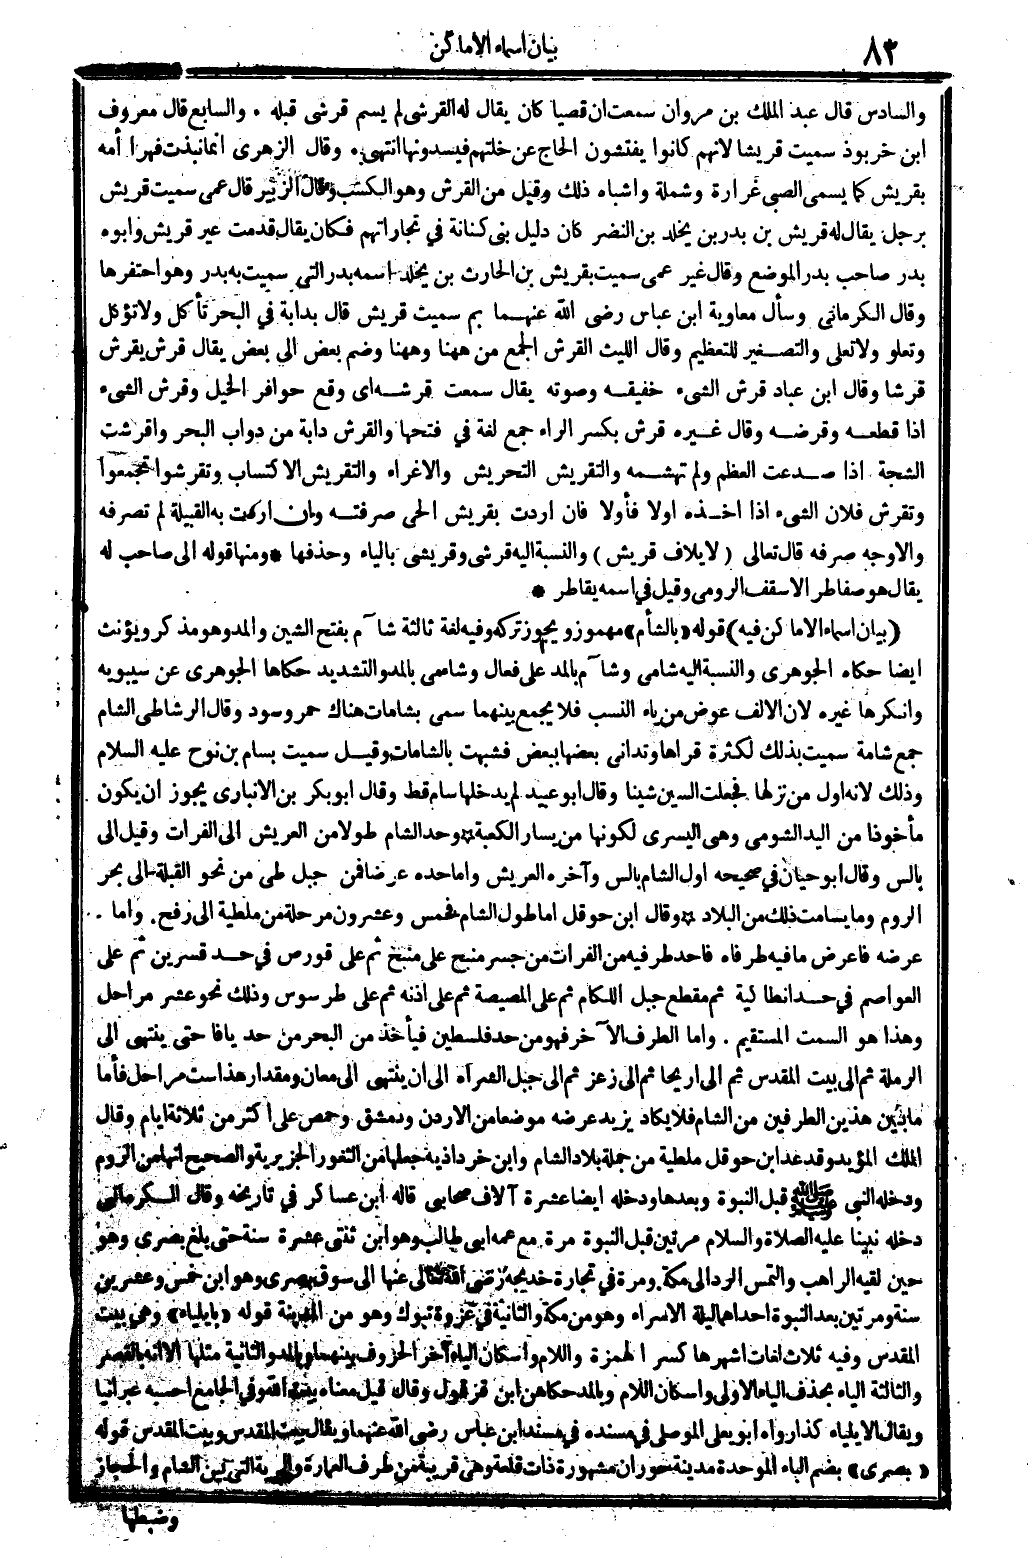 ٨٣
بيان اسماء الاماكن
والسادس قال عبد الملك بن مروان سمعت ان قصيا كان يقال له القرشى لم يسم قرشى قبله ٠ والسابع قال معروف
ابن خربوذ سميت قريشا لانهم كانوا يفتشون الحاج عن خلتهم فيسدونها انتهى ٠ وقال الزهرى انما نبذت فهرا أمه
بقريش كما يسمى الصبى غرارة وشملة واشباه ذلك وقيل من القرش وهو الكسب وقال الزبير قال عمى سميت قريش
برجل يقال له قريش بن بدر بن يخلد بن النضر كان دليل بنى كنانة في تجاراتهم فكان يقال قدمت عير قريش وابوه
بدر صاحب بدر الموضع وقال غير عمى سميت بقريش بن الحارث بن يخلد اسمه بدر التى سميت به بدر وهو احتفرها
وقال الكرمانى وسأل معاوية ابن عباس رضى الله عنهما بم سميت قريش قال بدابة في البحر تأكل ولا تؤكل
وتعلو ولا تعلى والتصغير للتعظيم وقال الليث القرش الجمع من ههنا وههنا وضم بعض الى بعض يقال قرش يقرش
قرشا وقال ابن عباد قرش الشىء خفيفه وصوته يقال سمعت قرشه اى وقع حوافر الخيل وقرش الشىء
اذا قطعه وقرضه وقال غيره قرش بكسر الراء جمع لغة في فتحها والقرش دابة من دواب البحر واقرشت
الشجة اذا صدعت العظم ولم تهشمه والتقريش التحريش والاغراء والتقريش الاكتساب وتقرشوا تجمعوا
وتقرش فلان الشىء اذا اخذه اولا فأولا فان اردت بقريش الحى صرفته وان اركت به القبيلة لم تصرفه
والاوجه صرفه قال تعالى ( لايلاف قريش ) والنسبة اليه قرشى وقريشى بالياء وحذفها * ومنها قوله الى صاحب له
يقال هو صفاطر الاسقف الرومى وقيل في اسمه يقاطر *
( بيان اسماء الاماكن فيه ) قوله « بالشأم » مهموز ويجوز تركه وفيه لغة ثالثة شآم بفتح الشين والمد وهو مذكر ويؤنث
ايضا حكاه الجوهرى والنسبة اليه شامى وشآم بالمد على فعال وشامى بالمد والتشديد حكاها الجوهرى عن سيبويه
وانكرها غيره لان الالف عوض من ياء النسب فلا يجمع بينهما سمى بشامات هناك حمر وسود وقال الرشاطى الشام
جمع شامة سميت بذلك لكثرة قراها وتدانى بعضها ببعض فشبهت بالشامات وقيل سميت بسام بن نوح عليه السلام
وذلك لانه اول من نزلها فجعلت السين شينا وقال ابو عبيد لم يدخلها سام قط وقال ابو بكر بن الانبارى يجوز ان يكون
مأخوذا من اليد الشومى وهى اليسرى لكونها من يسار الكعبة * وحد الشام طولا من العريش الى الفرات وقيل الى
بالس وقال ابو حيان في صحيحه اول الشام بالس وآخره العريش واما حده عرضا فمن جبل طى من نحو القبلة الى بحر
الروم وما يسامت ذلك من البلاد * وقال ابن حوقل اما طول الشام فخمس وعشرون مرحلة من ملطية الى رفح . واما
عرضه فاعرض ما فيه طرفاه فاحد طرفيه من الفرات من جسر منبج على منبج ثم على قورص في حد قنسرين ثم على
العواصم في حد انطاكية ثم مقطع جبل اللكام ثم على المصيصة ثم على اذنه ثم على طرسوس وذلك نحو عشر مراحل
وهذا هو السمت المستقيم . واما الطرف الآخر فهو من حد فلسطين فيأخذ من البحر من حد يافا حتى ينتهى الى
الرملة ثم الى بيت المقدس ثم الى اريحا ثم الى زعز ثم الى جبل الشراه الى ان ينتهى الى معان ومقدار هذا ست مراحل فأما
ما بين هذين الطرفين من الشام فلا يكاد يزيد عرضه موضعا من الاردن ودمشق وحمص على اكثر من ثلاثة ايام وقال
الملك المؤيد وقد عد ابن حوقل ملطية من جملة بلاد الشام وابن خرداذبه جعلها من الثغور الجزيرية والصحيح انها من الروم
ودخله النبى ﷺ قبل النبوة وبعدها ودخله ايضا عشرة آلاف صحابى قاله ابن عساكر في تاريخه وقال الكرمانى
دخله نبينا عليه الصلاة والسلام مرتين قبل النبوة مرة مع عمه ابى طالب وهو ابن ثنتى عشرة سنة حتى بلغ بصرى وهو
حين لقيه الراهب والتمس الرد الى مكة ومرة في تجارة خديجه رضى الله تعالى عنها الى سوق بصرى وهو ابن خمس وعشرين
سنة ومرتين بعد النبوة احداهما ليلة الاسراء وهو من مكة والثانية في غزوة تبوك وهو من المدينة قوله « بايلياء » وهى بيت
المقدس وفيه ثلاث لغات اشهرها كسر الهمزة واللام واسكان الياء آخر الحروف بينهما وبالمد والثانية مثلها الا انه بالقصر
والثالثة الياء بحذف الياء الاولى واسكان اللام وبالمد حكاهن ابن قرقول وقال قيل معناه بيت الله وفي الجامع احسبه عبرانيا
ويقال الايلياء كذا رواه ابو يعلى الموصلى في مسنده في مسند ابن عباس رضى الله عنهما ويقال بيت المقدس وبيت المقدس قوله
« بصرى » بضم الباء الموحدة مدينة حوران مشهورة ذات قلعة وهى قريبة من طرف العمارة والبرية التى بين الشام والحجاز
وضبطها